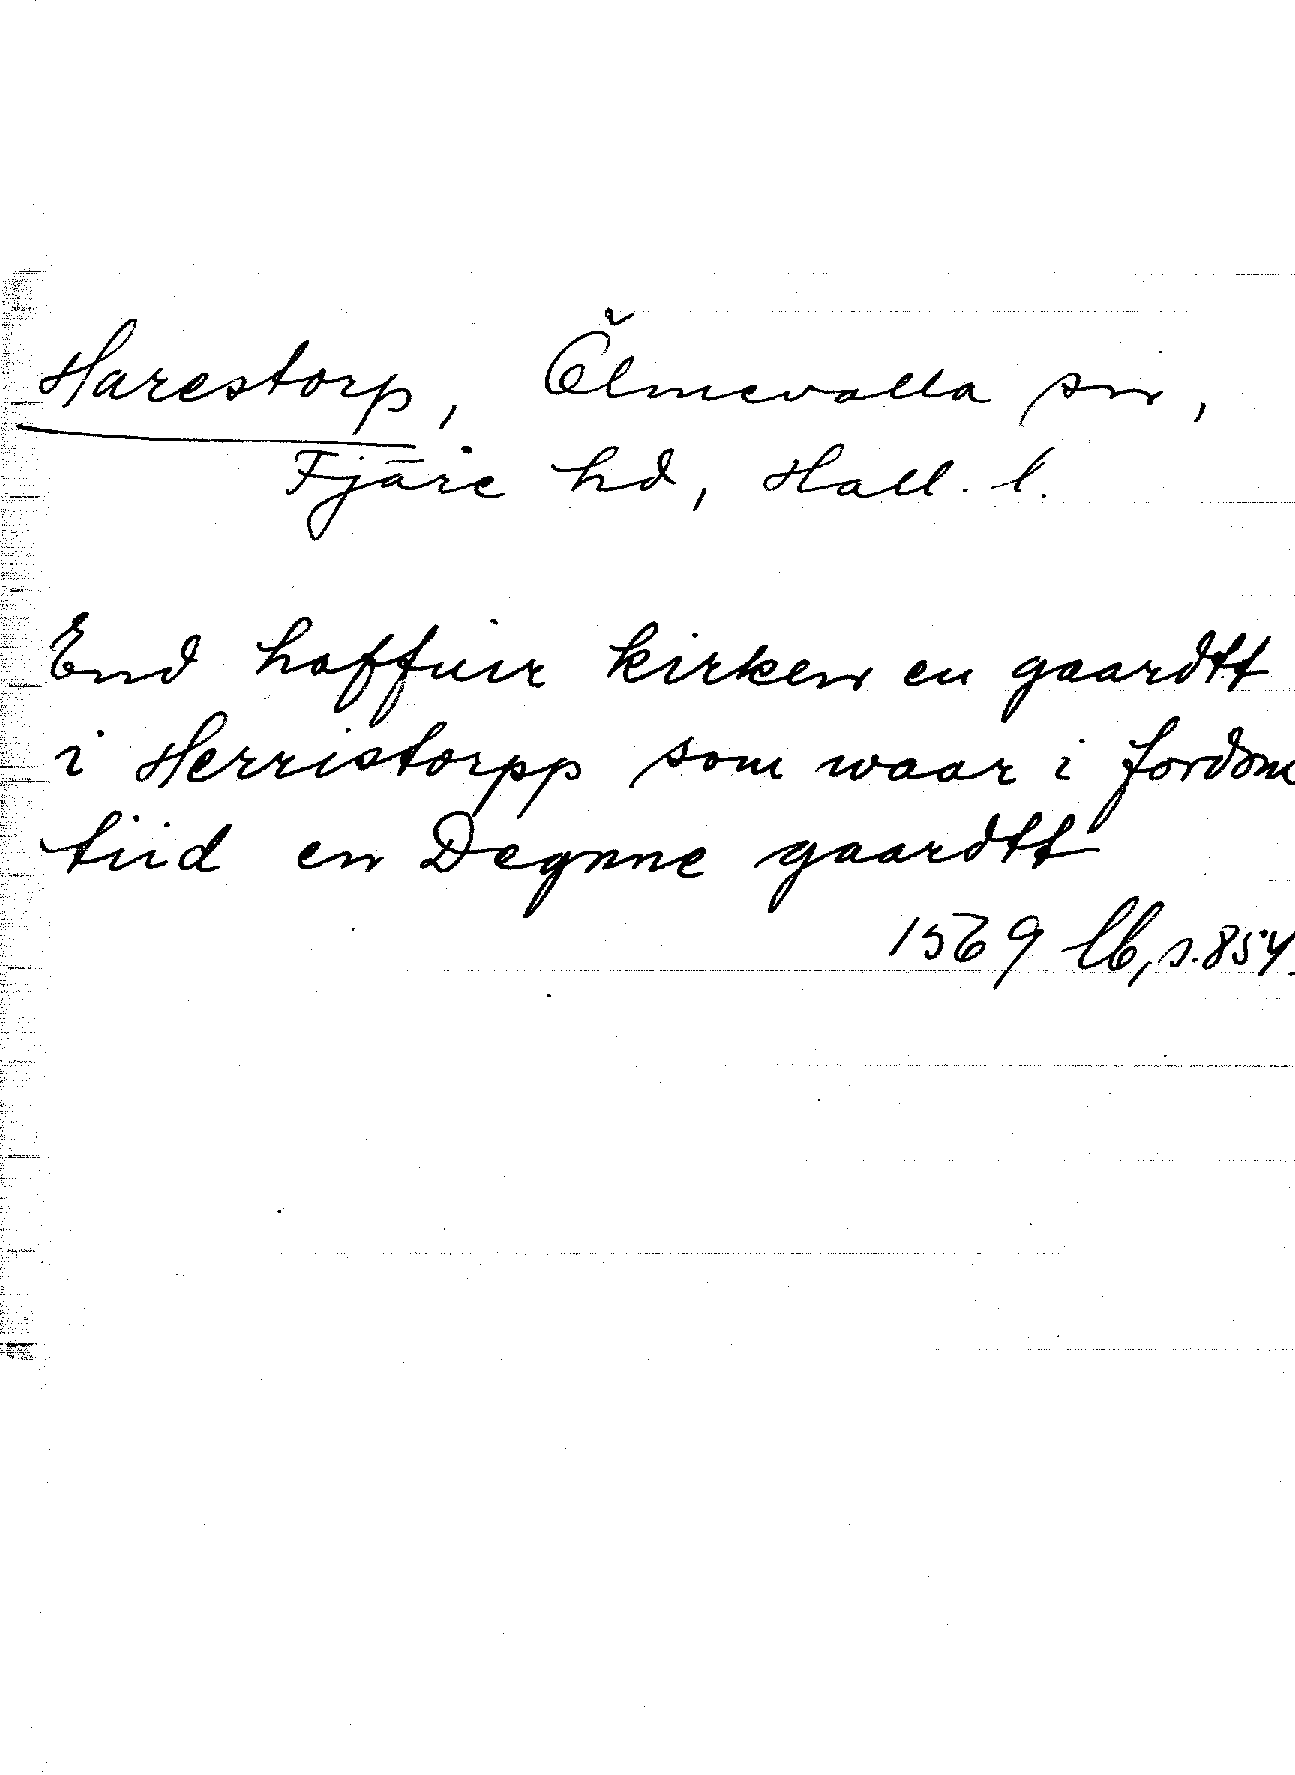 Harestorp, Ölmevalla sn,
Fjäre hd, Hall. l.
End haffuir kirken en gaardtt
i Herristorpp som waar i fordom
tiid en Degnne gaardtt
1569 lb, s. 854.